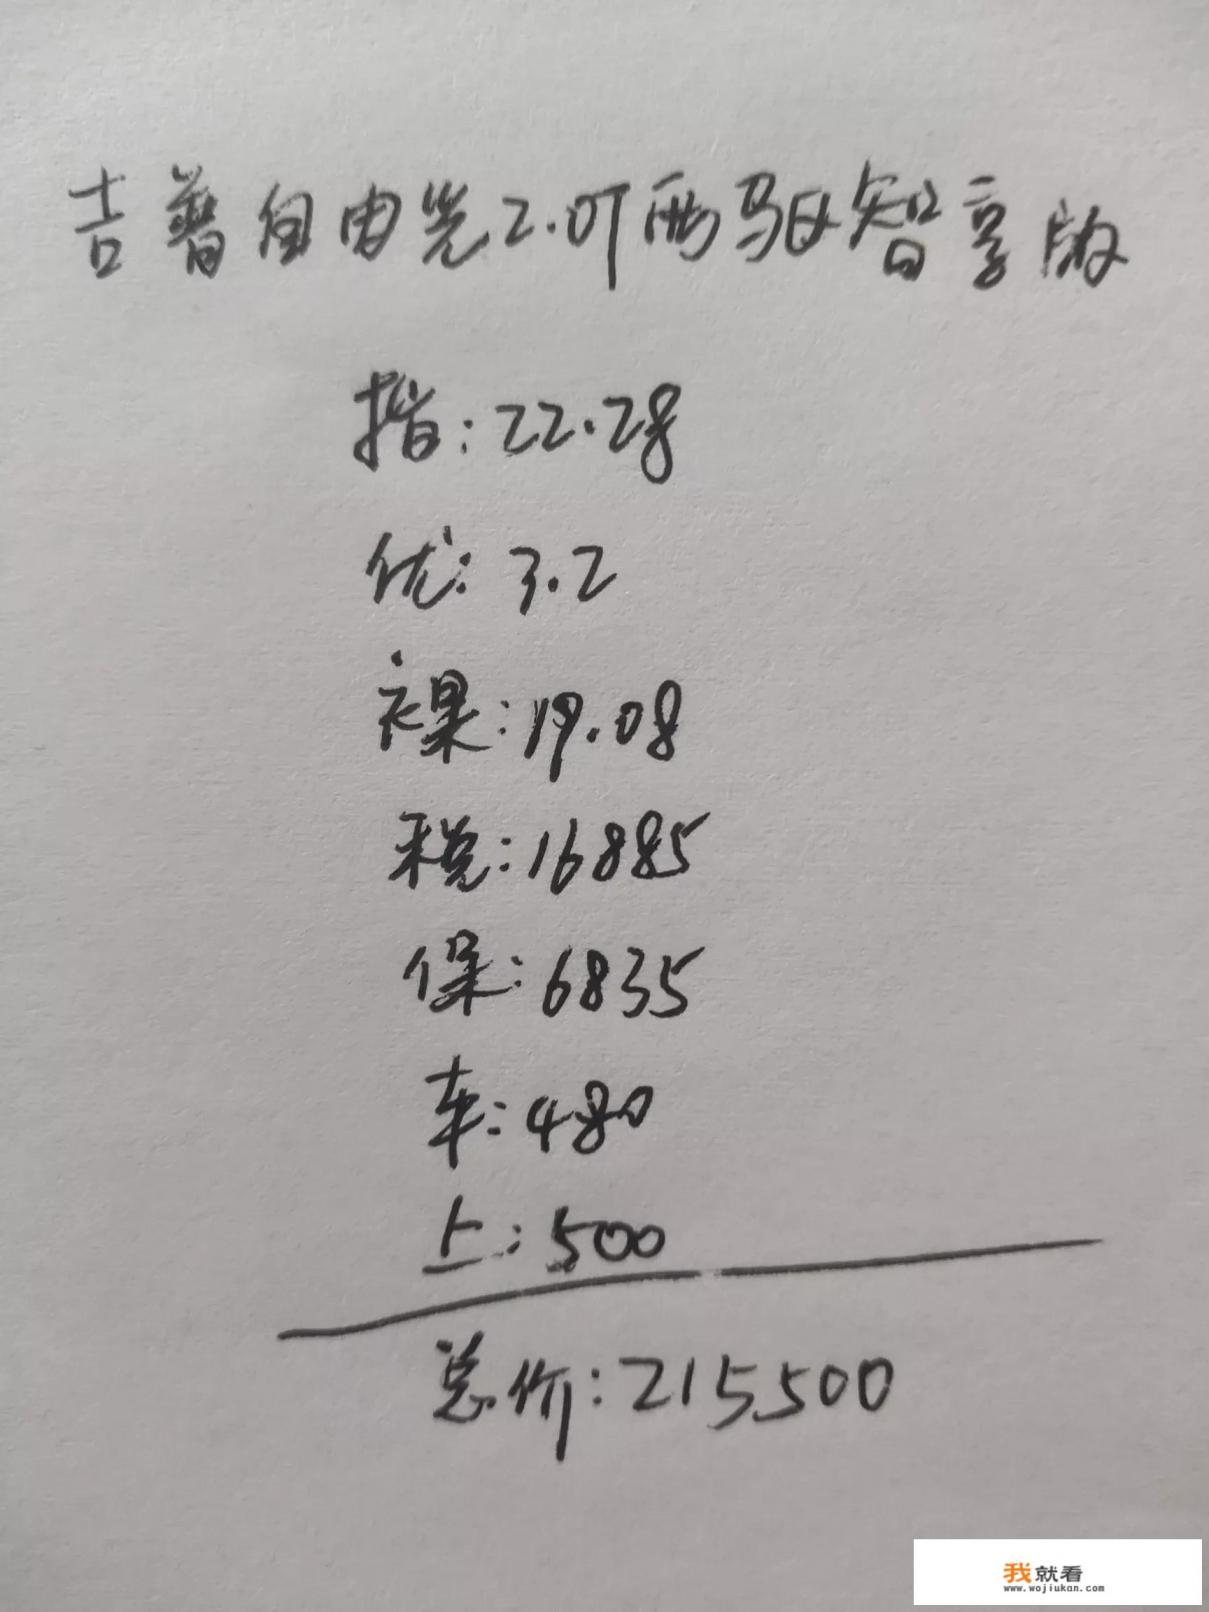 吉普自由光2.0T两驱智享版
指:22.28
优:3.2
裸:19.08
税:16885
保:6835
车:480
上:500
总价:215500
我就看
www.wojiukan.com